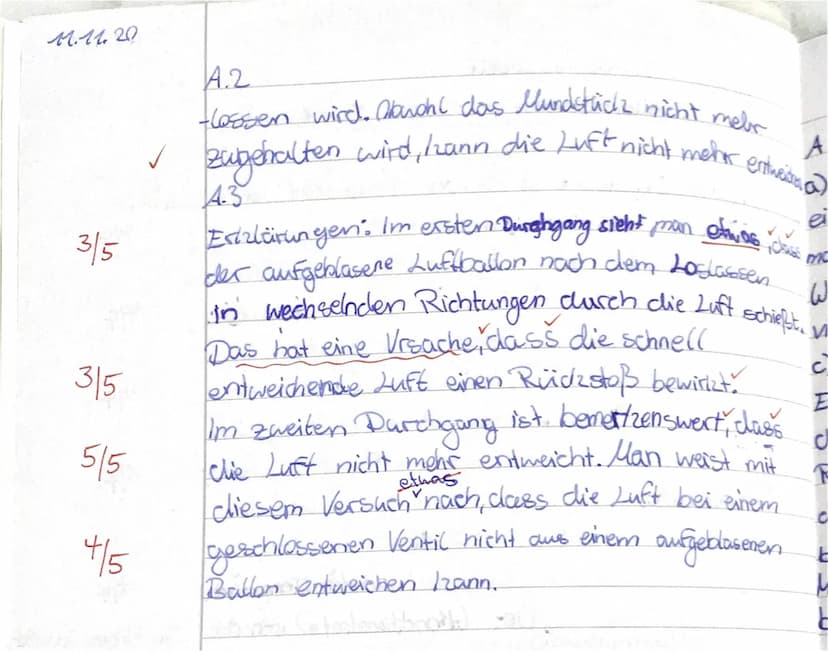 11.11.20
A.2
-lassen wird. Obwohl das Mundstück nicht mehr
zugehalten wird, kann die Luft nicht mehr entweichen
A.3
3/5
Erklärungen: Im ersten Durchgang sieht man etwas, dass
der aufgeblasene Luftballon nach dem Loslassen
in wechselnden Richtungen durch die Luft schießt.
Das hat eine Ursache, dass die schnell
3/5
entweichende Luft einen Rückstoß bewirkt.
Im zweiten Durchgang ist bemerkenswert, dass
5/5
die Luft nicht mehr entweicht. Man weist mit
etwas
diesem Versuch nach, dass die Luft bei einem
4/5
geschlossenen Ventil nicht aus einem aufgeblasenen
Ballon entweichen kann.
A
a)
ei
c)